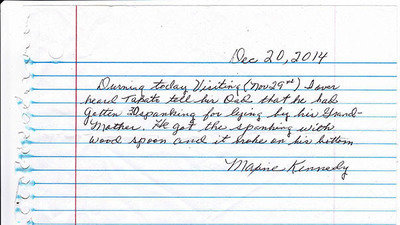 Dec 20, 2014
Durning today Visiting (Nov 29nd) I over
heard Takata tell his Dad that he had
gotten spanking for lying by his Grand-
Mother. He got the spanking with
wood spoon and it broke on his bottom
Maxine Kennedy